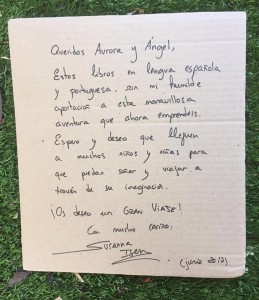 Queridos Aurora y Ángel,
Estos libros en lengua española
y portuguesa, son mi humilde
aportación a esta maravillosa
aventura que ahora emprendeis.
Espero y deseo que lleguen
a muchos niños y niñas para
que puedan soñar y viajar a
través de su imaginación.
¡Os deseo un GRAN VIAJE!
Con mucho cariño,
Susanna
Isern
(junio 2012)